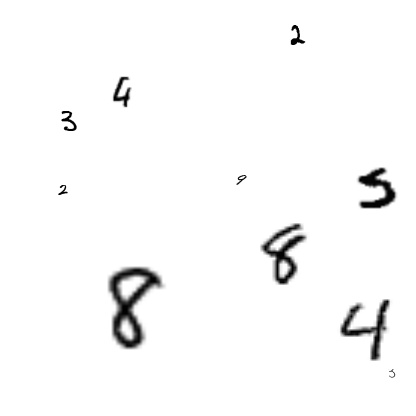 2
4
3
2 9 5
8
8
4
3